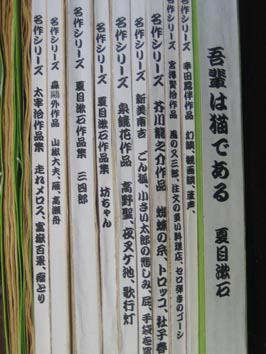 吾輩は猫である 夏目漱石
名作シリーズ 幸田露伴作品 幻談、観画談、
名作シリーズ 宮澤賢治作品 風の又三郎、注文の多い料理店、セロ弾きのゴーシ
名作シリーズ 芥川龍之介作品 蜘蛛の糸、トロッコ、杜子春
名作シリーズ 新美南吉 ごん狐、小さい太郎の悲しみ、屁、手袋を買
名作シリーズ 泉鏡花作品 高野聖、夜叉ケ池、歌行灯
名作シリーズ 夏目漱石作品集 坊ちゃん
名作シリーズ 夏目漱石作品集 三四郎
名作シリーズ 森鷗外作品 山椒大夫、雁、高瀬舟
名作シリーズ 太宰治作品集 走れメロス、富嶽百景、瘤とり